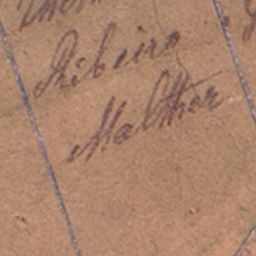 Ribeiro
Malther